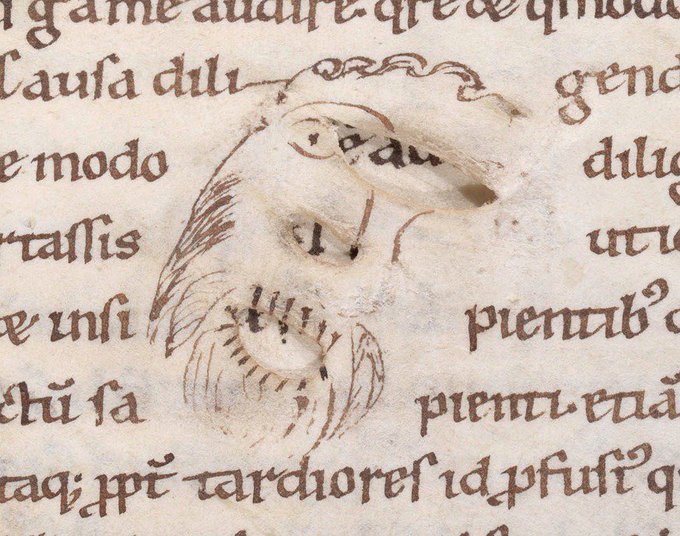 game audire. qre & qmodo
causa dili gend
e modo dilig
rtassis uti
& insi pientib' c
ctũ sa pienti. etiã
taq; ꝓpt̃ tardiores id ꝓfusi' q